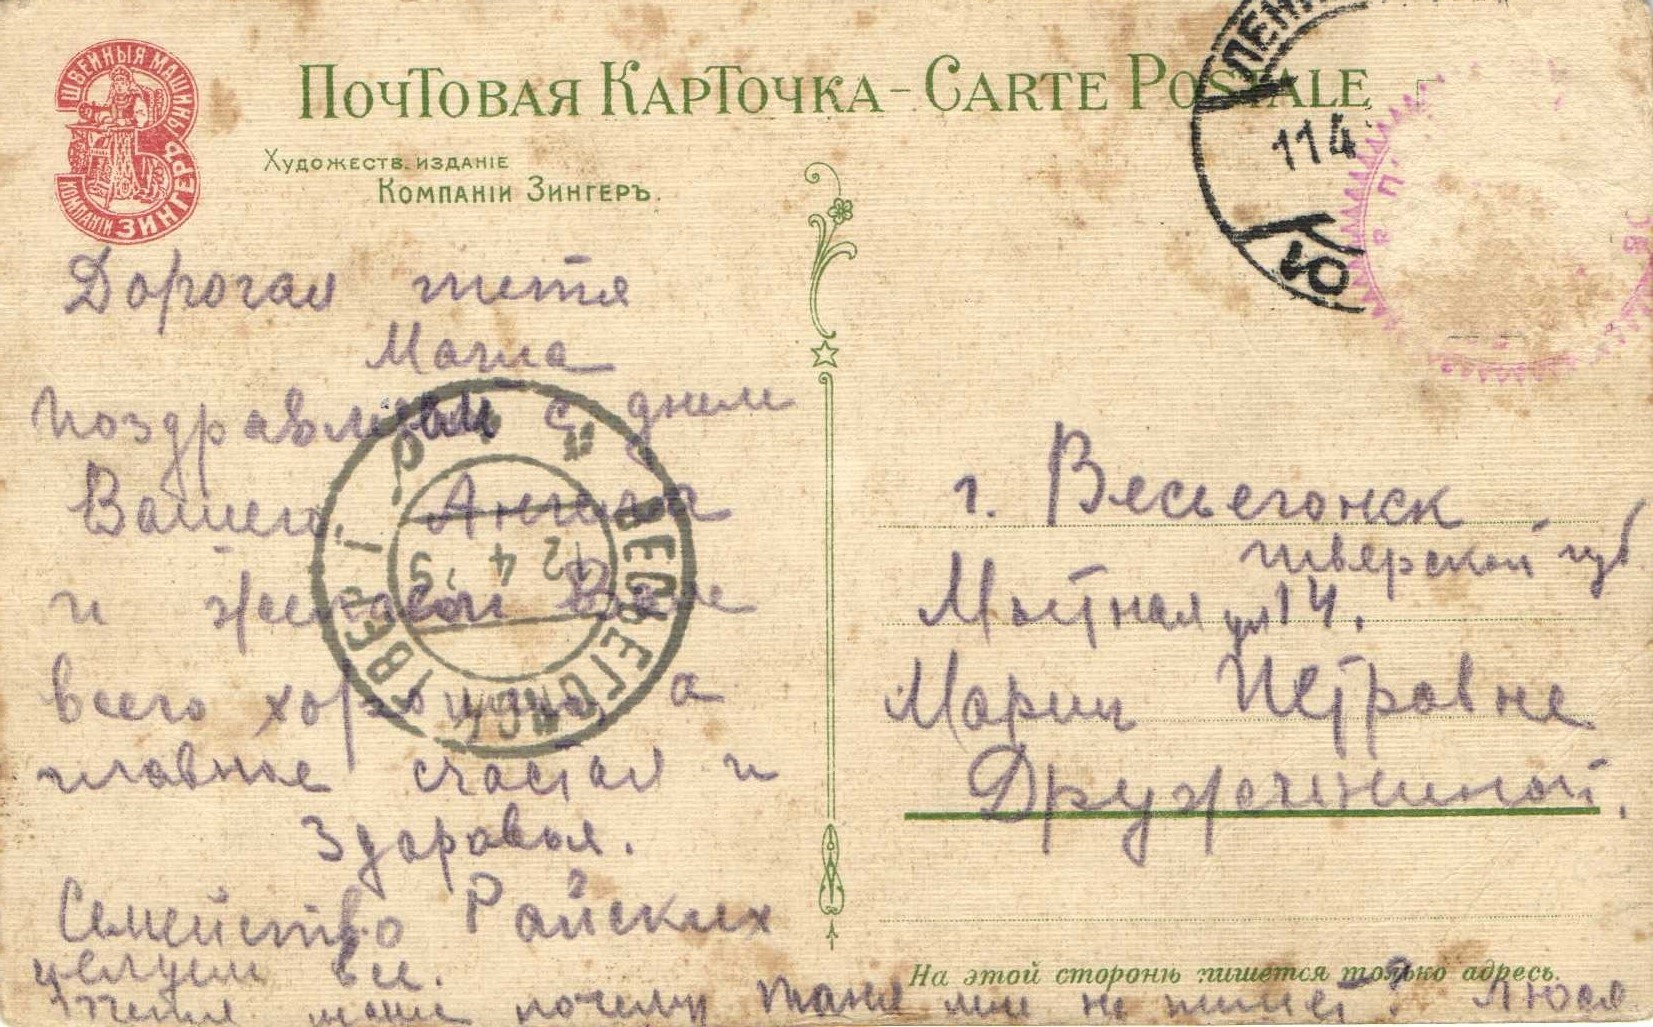 ШВЕЙНЫЯ МАШИНЫ
КОМПАНІИ ЗИНГЕРЪ
ПОЧТОВАЯ КАРТОЧКА - CARTE POSTALE
ХУДОЖЕСТВ. ИЗДАНІЕ
КОМПАНІИ ЗИНГЕРЪ.
Дорогая тетя
Маша
поздравляем с днем
Вашего Ангела
и желаем Вам
всего хорошего, а
главное счастья и
здоровья.
Семейство Райских
целуем все.
Тетя маша почему Таня мне не пишет? Люся
ВЕСЬЕГОНСК ТВЕР
12 4
ЛЕНИ
11 4
г. Весьегонск
тверской губ
Мытная ул 14.
Марии Петровне
Дружининой.
На этой сторонѣ пишется только адресъ.